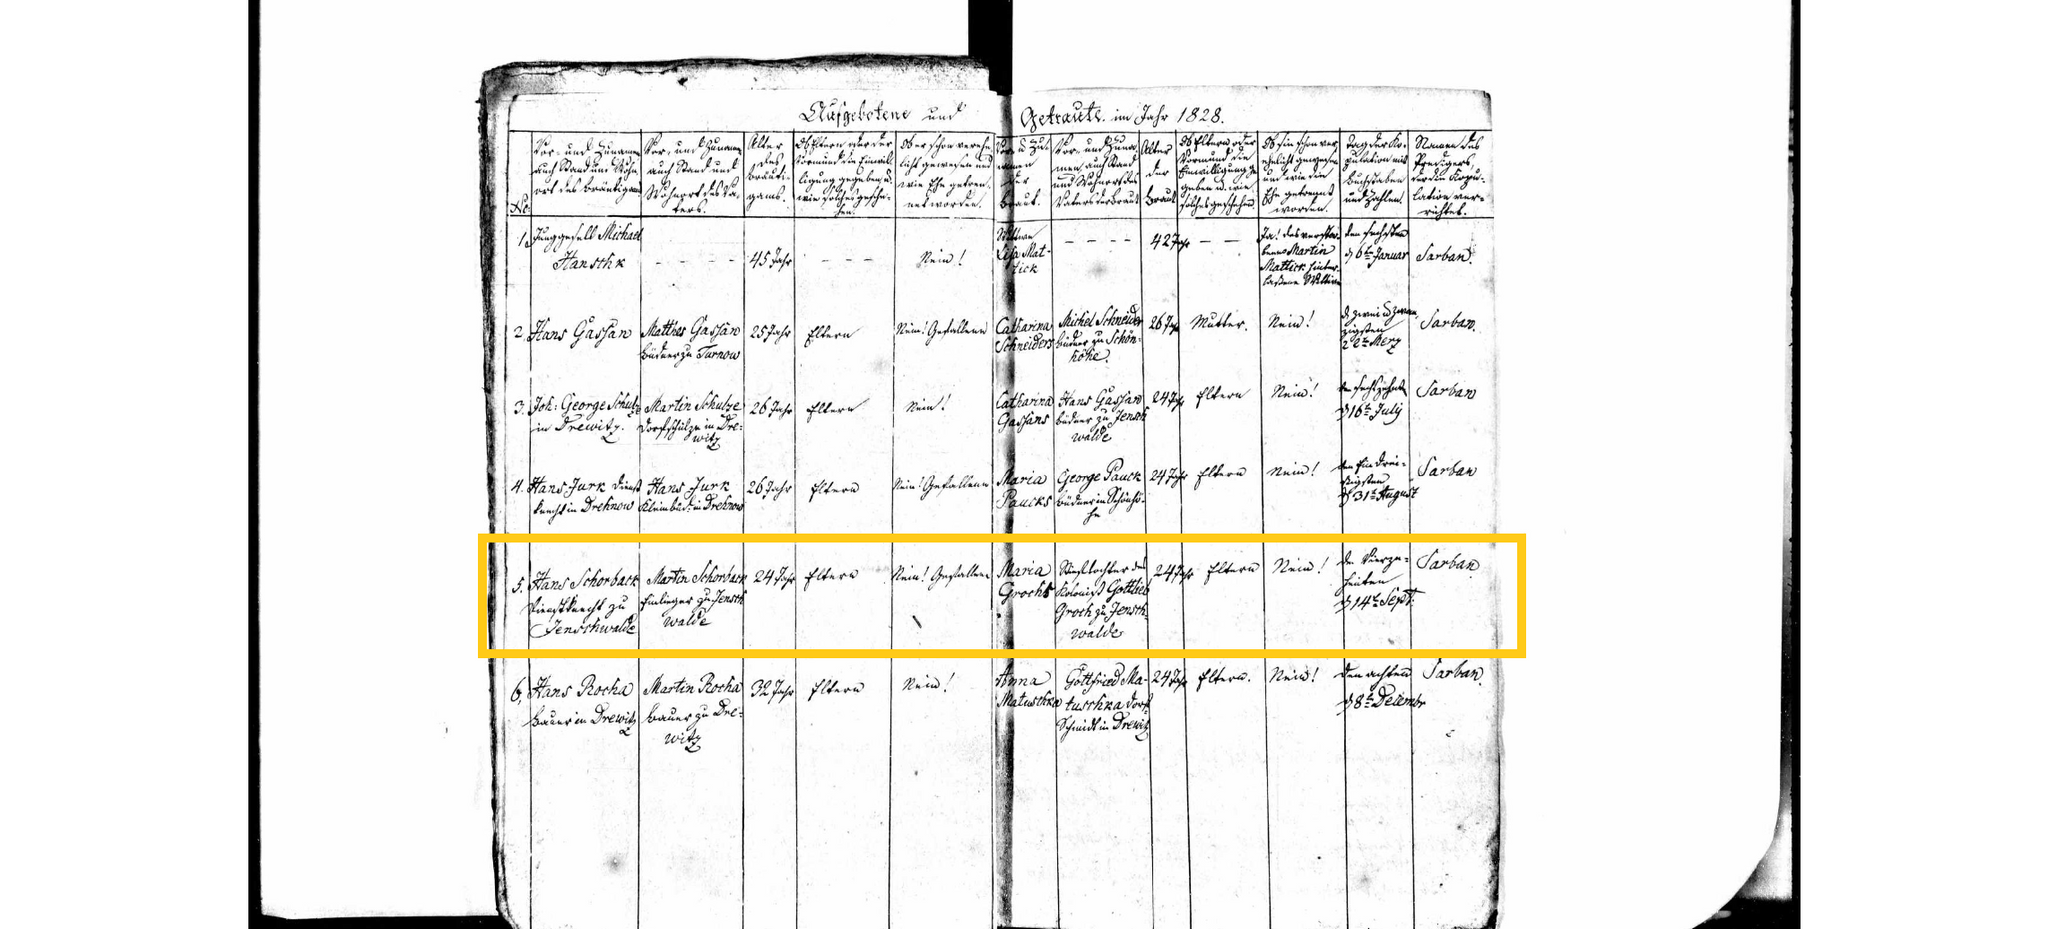 Aufgebotene und Getraute im Jahr 1828.
No.
Vor- und Zunamen
auch Stand und Wohn-
ort des Bräutigams
Vor- und Zunamen
auch Stand und
Wohnort des Va-
ters.
Alter
des
Bräuti-
gams.
Ob Eltern oder der
Vormund die Einwil-
ligung gegeben u.
wie solches gesche-
hen.
Ob er schon verehe-
licht gewesen und
wie die Ehe getren-
net worden.
Vor- u Zu-
namen
der
Braut.
Vor- und Zuna-
men, auch Stand
und Wohnort des
Vaters der Braut
Alter
der
Braut
Ob Eltern oder
Vormund die
Einwilligung ge-
geben u. wie
solches geschehen.
Ob sie schon ver-
ehelicht gewesen
und wie die
Ehe getrennt
worden.
Tag der Ko-
pulation mit
Buchstaben
und Zahlen.
Namen des
Predigers
der die Kopu-
lation ver-
richtet.
1. Junggesell Michael
Hanschk
45 Jahr
Nein!
Wittwe
Lisa Mat-
tick
42 Jahr
Ja! des verstor-
benen Martin
Mattick hinter-
laßene Wittwe
den sechsten
d 6te Januar
Sarban.
2. Hans Gassan
Matthes Gassan
Büdner zu Turnow
25 Jahr
Eltern
Nein! Gefallene
Catharina
Schneiders
Michel Schneider
Büdner zu Schön-
höhe.
26 Jahr
Mutter.
Nein!
d. zwei u zwan-
zigsten
22te Merz
Sarban.
3. Joh: George Schulze
in Drewitz.
Martin Schulze
Dorfschulze in Dre-
witz
26 Jahr
Eltern
Nein!
Catharina
Gassans
Hans Gassan
Büdner zu Jensch
walde
24 Jahr
Eltern
Nein!
den sechszehnten
d 16te July
Sarban
4. Hans Jurk Dienst
knecht in Drehnow
Hans Jurk
Kleinbüd: in Drehnow
26 Jahr
Eltern
Nein! Gefallene
Maria
Paucks
George Pauck
Büdner in Schönhö-
he
24 Jahr
Eltern
Nein!
den Ein Drei-
ßigsten
d 31te August
Sarban
5. Hans Schorback
Dienstknecht zu
Jenschwalde
Martin Schorback
Einlieger zu Jensch
walde
24 Jahr
Eltern
Nein! Gefallene
Maria
Grochs
Stieftochter des
Kolonist Gottlieb
Groch zu Jensch-
walde
24 Jahr
Eltern
Nein!
de Vierze-
henten
d 14te Sept:
Sarban
6. Hans Rocha
Bauer in Drewitz
Martin Rocha
Bauer zu Dre-
witz
32 Jahr
Eltern
Nein!
Anna
Matuschka
Gottfried Ma-
tuschka Dorf-
Schmidt in Drewitz
24 Jahr
Eltern.
Nein!
den achten
d 8te Decembr
Sarban.